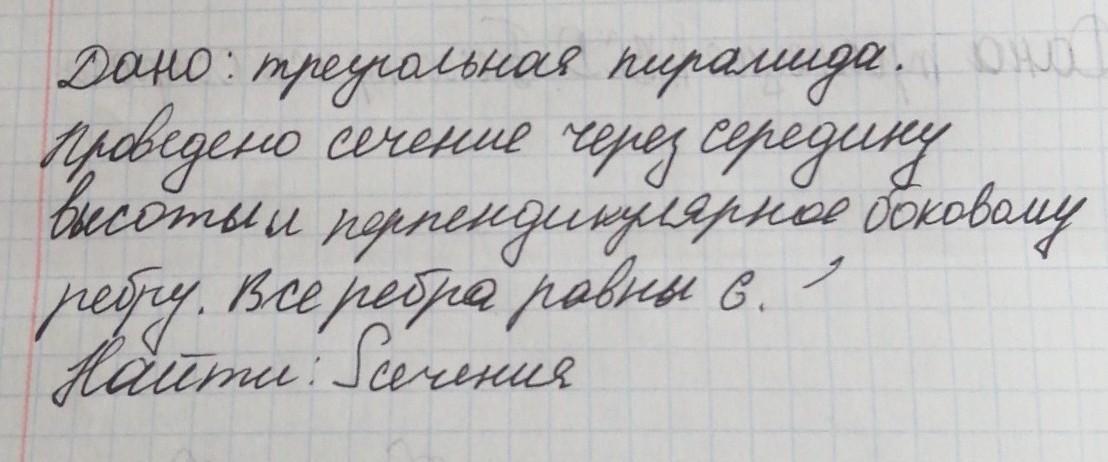 Дано: треугольная пирамида.
Проведено сечение через середину
высоты и перпендикулярное боковому
ребру. Все ребра равны 6.
Найти: Sсечения